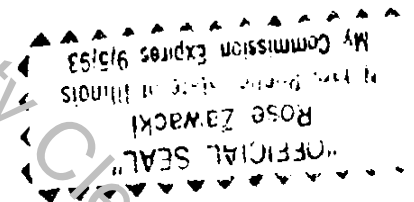 "OFFICIAL SEAL"
Rose Zawacki
State of Illinois
My Commission Expires 9/5/93